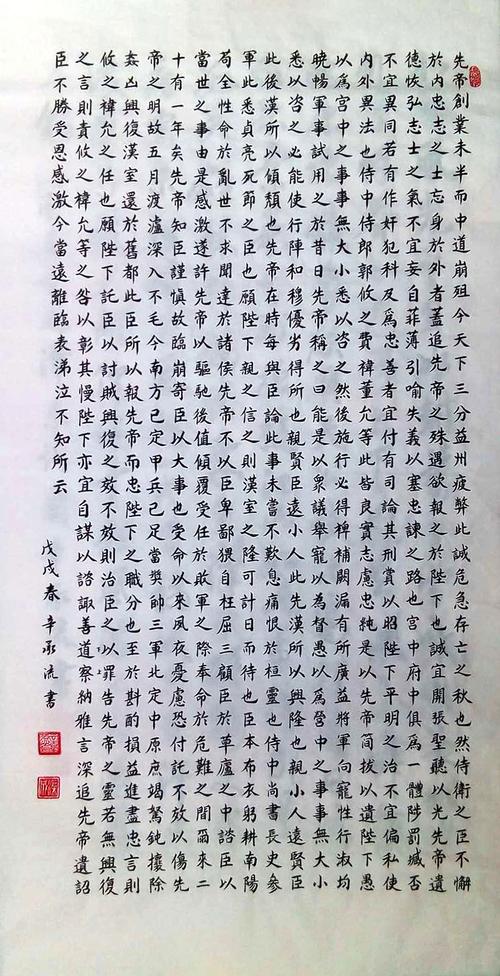 先帝創業未半而中道崩殂今天下三分益州疲弊此誠危急存亡之秋也然侍衛之臣不懈
於內忠志之士忘身於外者蓋追先帝之殊遇欲報之於陛下也誠宜開張聖聽以光先帝遺
德恢弘志士之氣不宜妄自菲薄引喻失義以塞忠諫之路也宮中府中俱爲一體陟罰臧否
不宜異同若有作奸犯科及爲忠善者宜付有司論其刑賞以昭陛下平明之治不宜偏私使
內外異法也侍中侍郎郭攸之費禕董允等此皆良實志慮忠純是以先帝簡拔以遺陛下愚
以爲宮中之事事無大小悉以咨之然後施行必得裨補闕漏有所廣益將軍向寵性行淑均
曉暢軍事試用之於昔日先帝稱之曰能是以衆議舉寵以為督愚以爲營中之事事無大小
悉以咨之必能使行陣和穆優劣得所也親賢臣遠小人此先漢所以興隆也親小人遠賢臣
此後漢所以傾頹也先帝在時每與臣論此事未嘗不歎息痛恨於桓靈也侍中尚書長史參
軍此悉貞亮死節之臣也願陛下親之信之則漢室之隆可計日而待也臣本布衣躬耕南陽
苟全性命於亂世不求聞達於諸侯先帝不以臣卑鄙猥自枉屈三顧臣於草廬之中諮臣以
當世之事由是感激遂許先帝以驅馳後值傾覆受任於敗軍之際奉命於危難之間爾來二
十有一年矣先帝知臣謹慎故臨崩寄臣以大事也受命以來夙夜憂慮恐付託不效以傷先
帝之明故五月渡瀘深入不毛今南方已定甲兵已足當獎帥三軍北定中原庶竭駑鈍攘除
姦凶興復漢室還於舊都此臣所以報先帝而忠陛下之職分也至於斟酌損益進盡忠言則
攸之禕允之任也願陛下託臣以討賊興復之效不效則治臣之以罪告先帝之靈若無興復
之言則責攸之禕允等之咎以彰其慢陛下亦宜自謀以諮諏善道察納雅言深追先帝遺詔
臣不勝受恩感激今當遠離臨表涕泣不知所云
戊戌春辛承流書